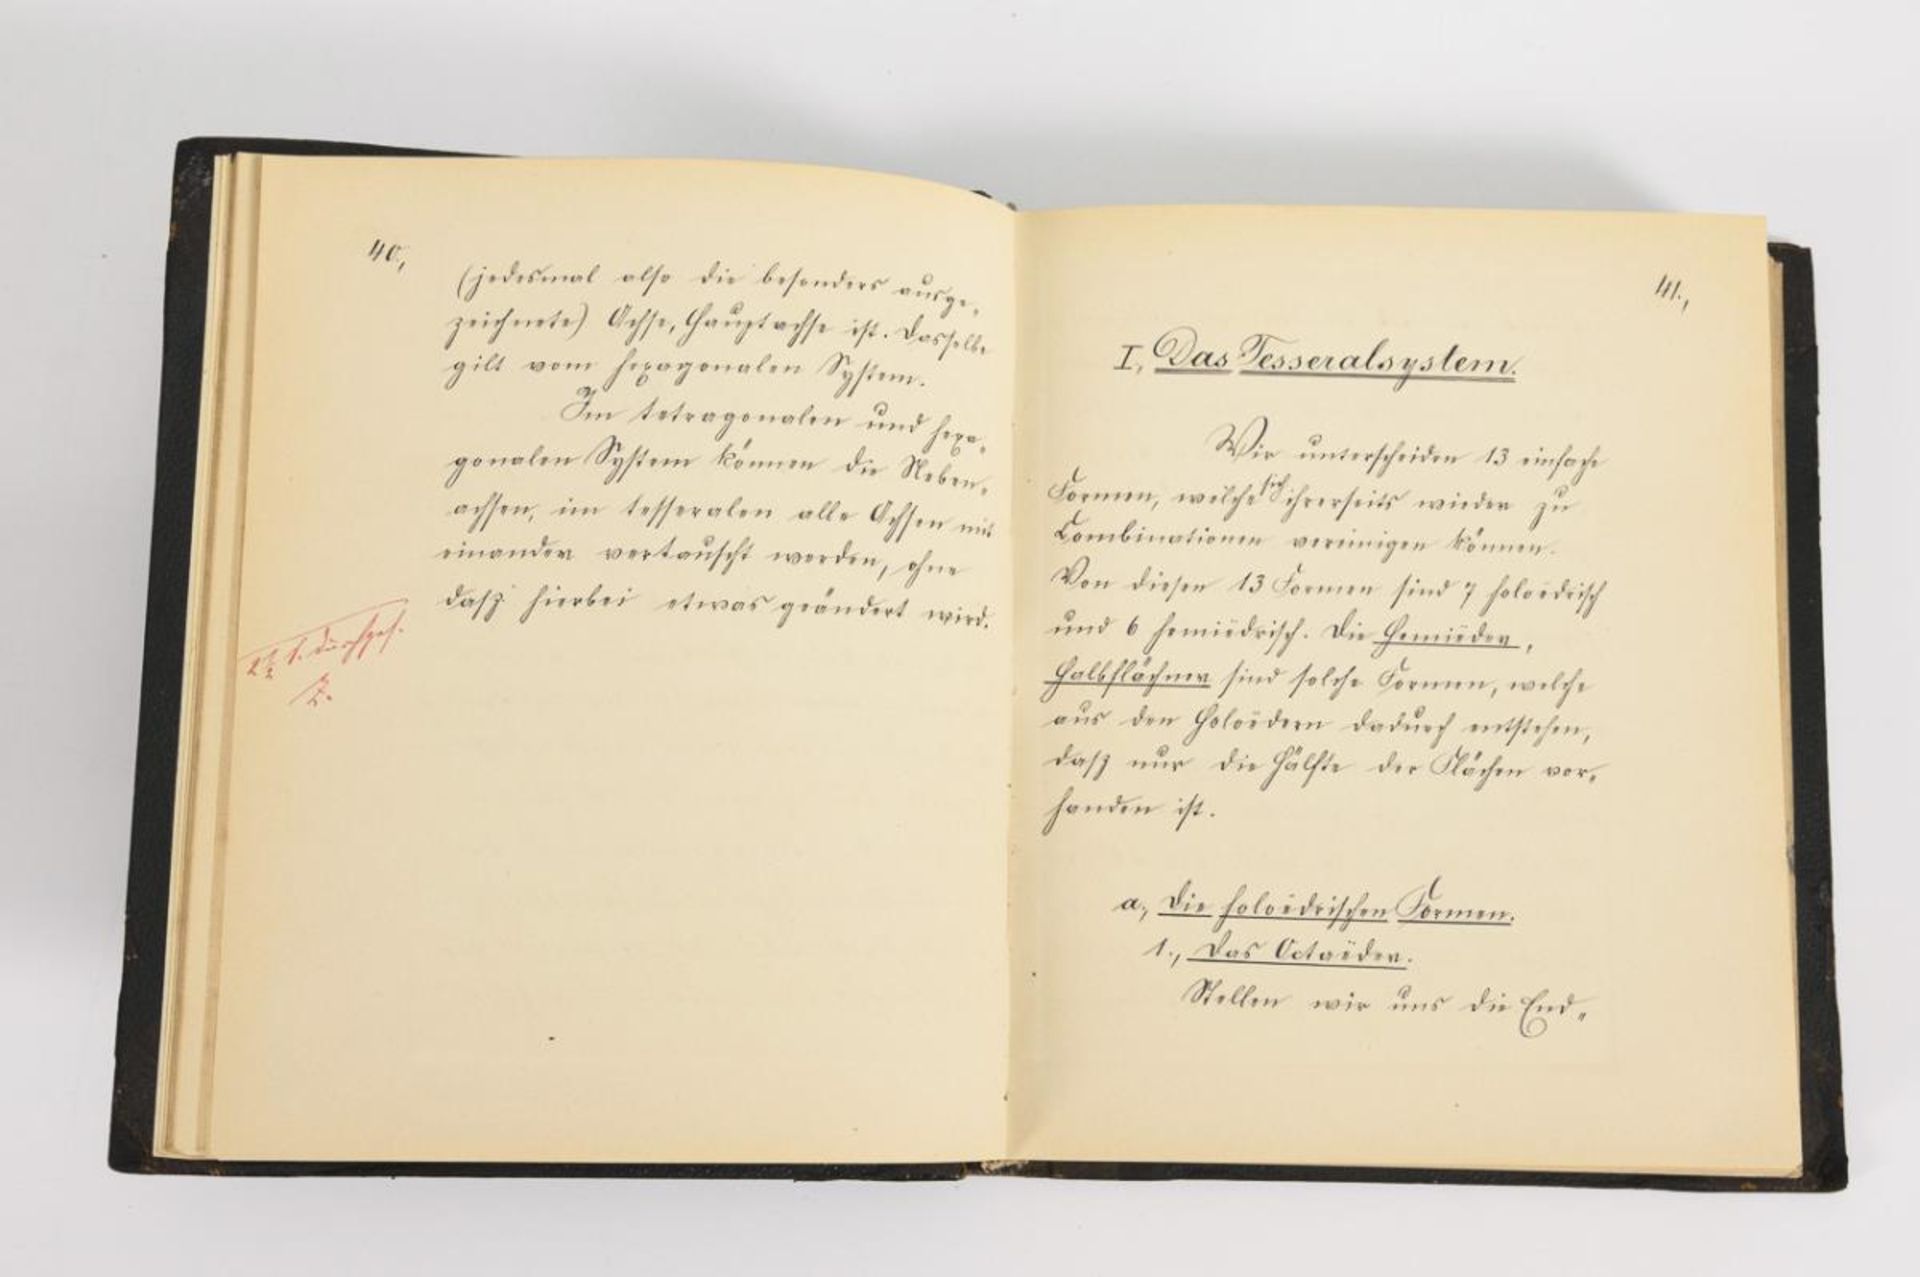 40.,
(jedesmal also die besonders ausge-
zeichnete) Achse, Hauptachse ist. Dasselbe
gilt vom hexagonalen System.
Im tetragonalen und hexa-
gonalen System können die Neben-
achsen, im tesseralen alle Achsen mit
einander vertauscht werden, ohne
daß hierbei etwas geändert wird.
41.,
I., Das Tesseralsystem.
Wir unterscheiden 13 einfache
Formen, welche sich ihrerseits wieder zu
Combinationen vereinigen können.
Von diesen 13 Formen sind 7 holoëdrisch
und 6 hemiëdrisch. Die Hemiëder,
Halbflächner sind solche Formen, welche
aus den Holoëdern dadurch entstehen,
daß nur die Hälfte der Flächen vor-
handen ist.
a., Die holoëdrischen Formen.
1., Das Octaëder.
Stellen wir uns die End-